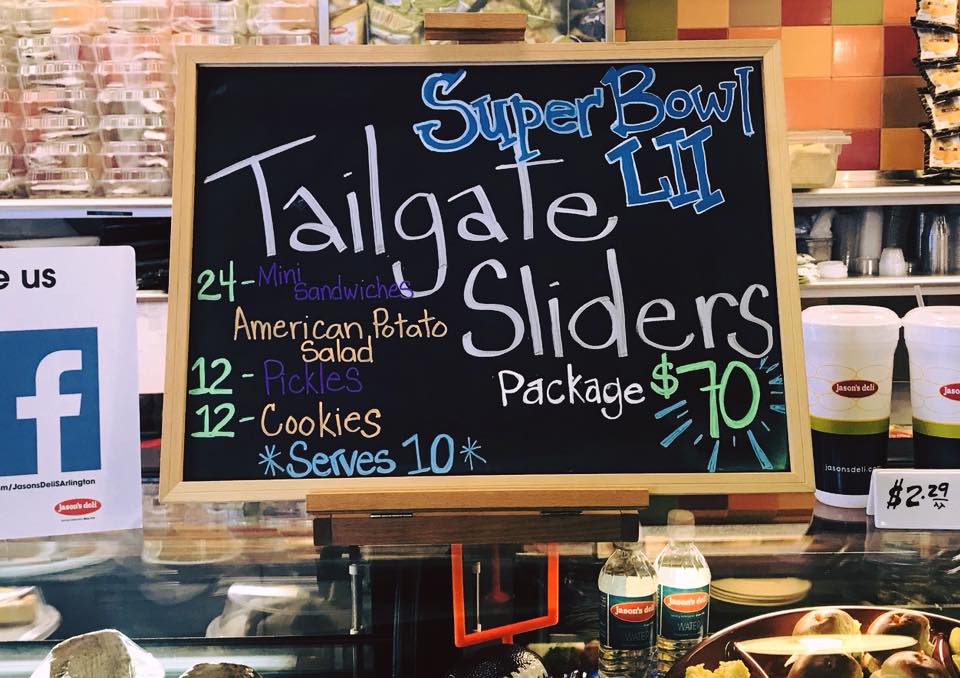 Super Bowl
LII
Tailgate
Sliders
Package $70
24 - Mini
Sandwiches
American Potato
Salad
12 - Pickles
12 - Cookies
*Serves 10*
e us
f
m/JasonsDeliSArlington
Jason's deli
Jason's deli
jasonsdeli.c
Jason's
$2.29
Jason's deli
WATER
Jason's deli
WATER